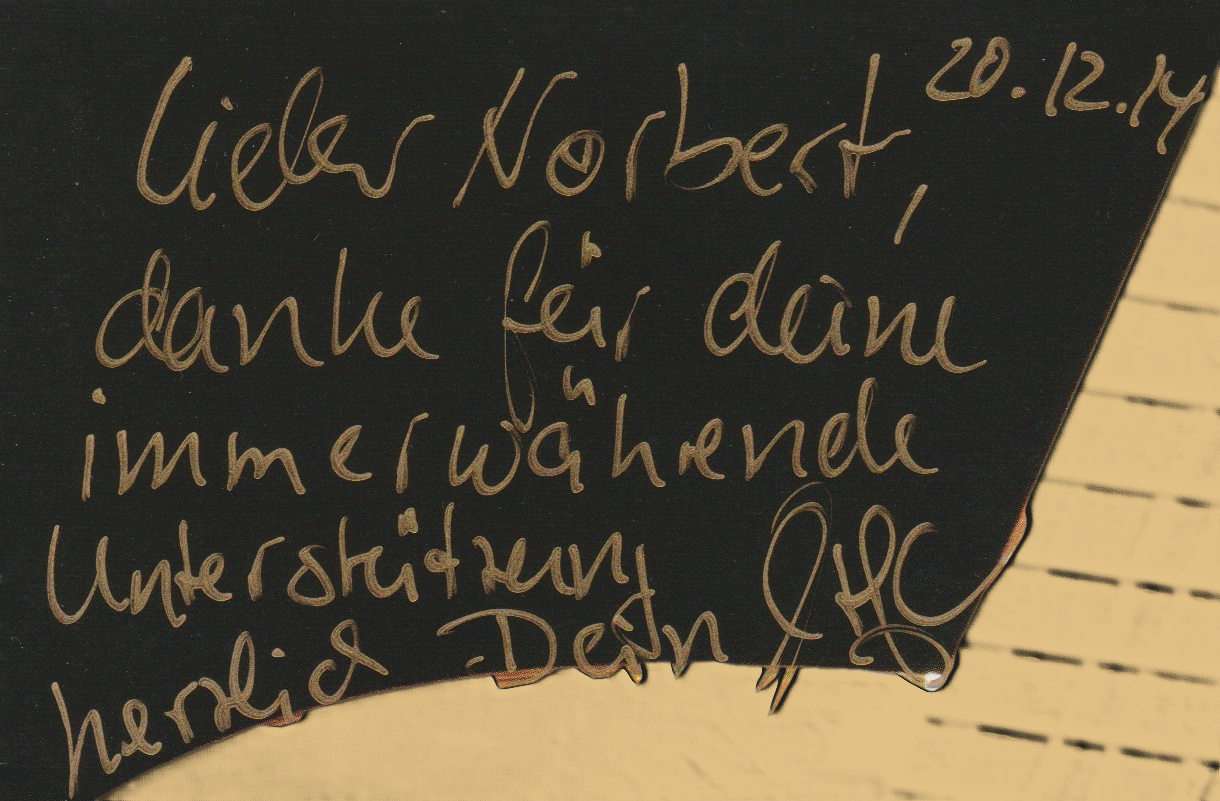 20.12.14
lieber Norbert,
danke für deine
immerwährende
Unterstützung
herzlich Dein